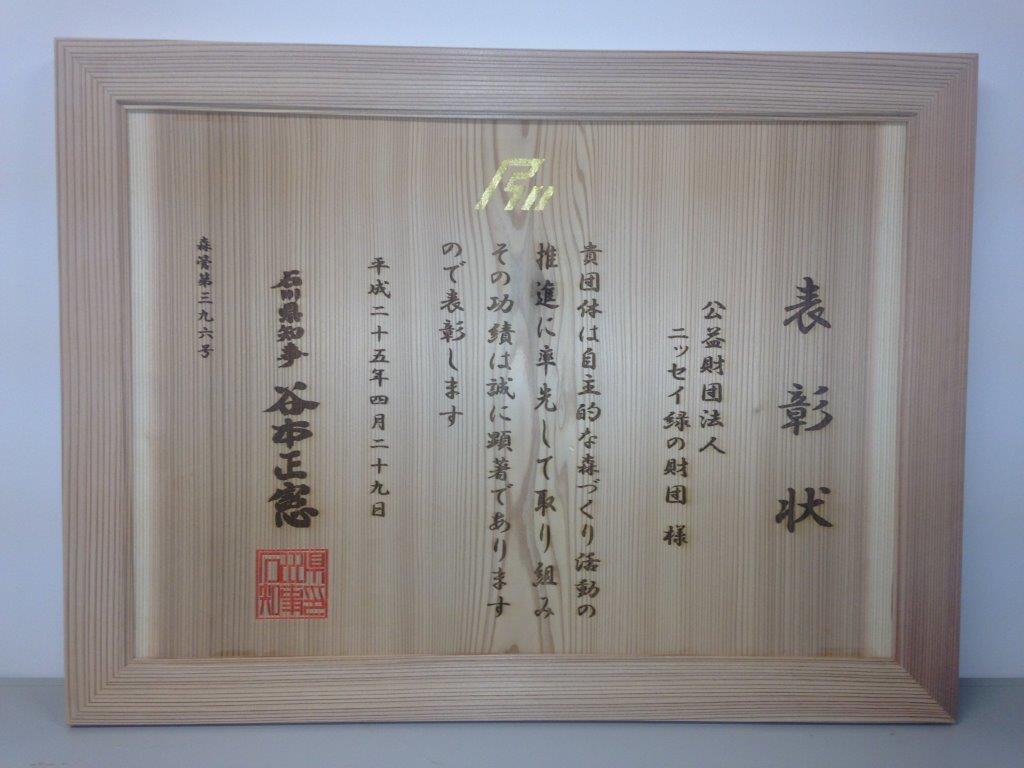 表彰状
公益財団法人
ニッセイ緑の財団 様
貴団体は自主的な森づくり活動の
推進に率先して取り組み
その功績は誠に顕著であります
ので表彰します
平成二十五年四月二十九日
石川県知事 谷本正憲
森管第三九六号